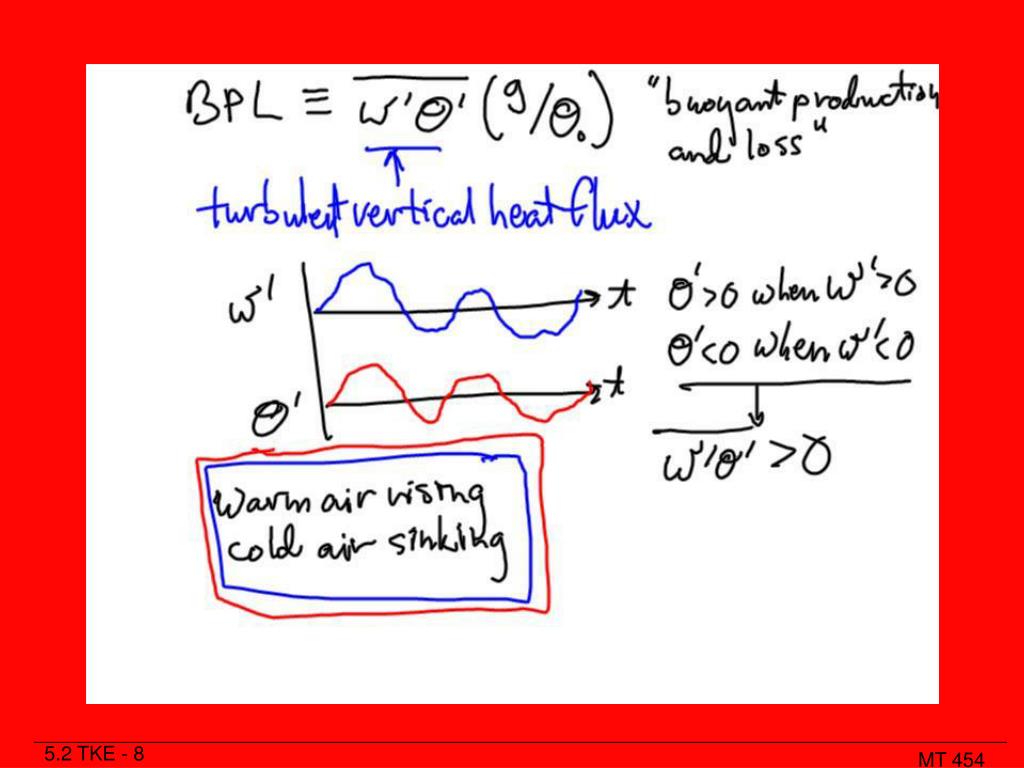 BPL ≡ w'θ' (g/θ₀) "buoyant production
and loss"
turbulent vertical heat flux
w'
t
θ'>0 when w'>0
θ'<0 when w'<0
θ'
t
w'θ' >0
warm air rising
cold air sinking
5.2 TKE - 8
MT 454